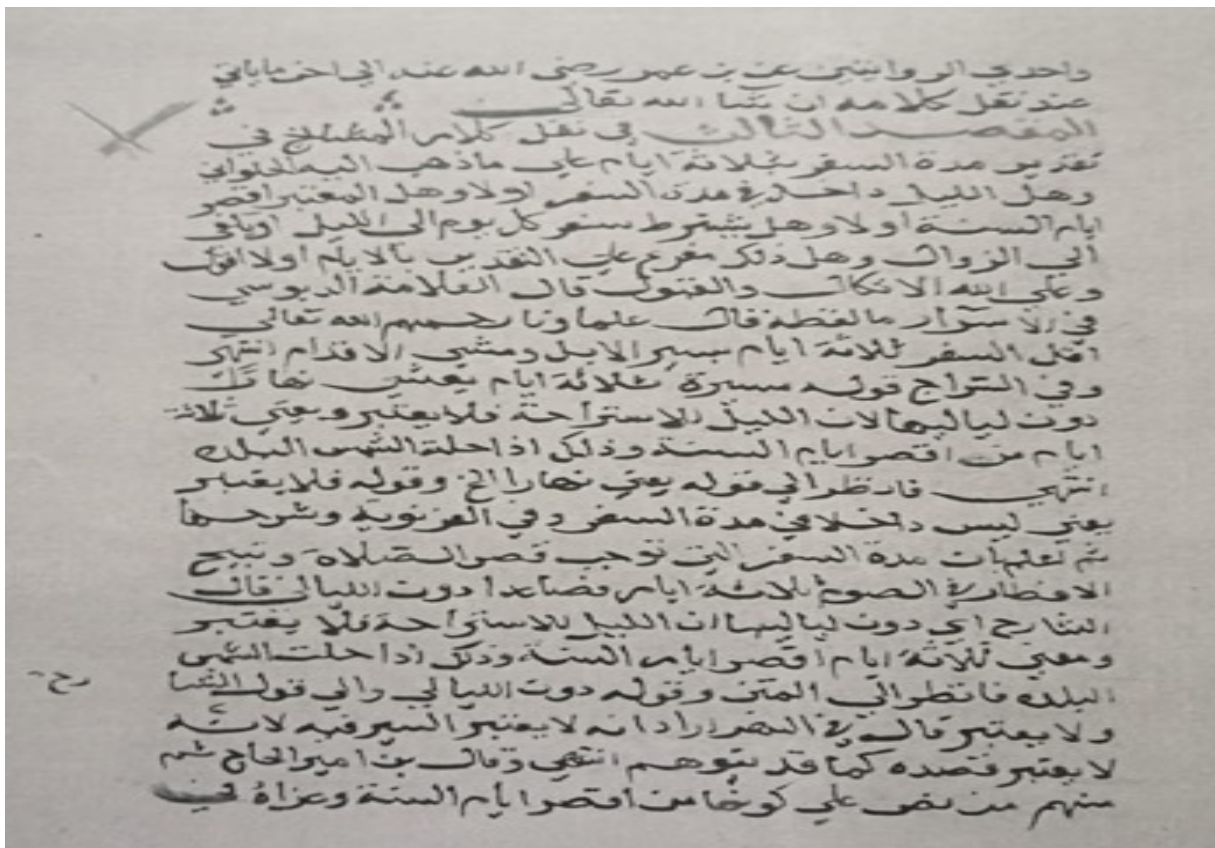 واحدي الروايتين عن بن عمر رضي الله عنه الي اخر ما ياتي
عند نقل كلامه ان شا الله تعالى
المقصد الثالث في نقل كلام المشايخ في
تقدير مدة السفر بثلاثة ايام علي ما ذهب اليه الحلواني
وهل الليل داخل في مدة السفر اولا وهل المعتبر اقصر
ايام السنة اولا وهل يشترط سفر كل يوم الى الليل او يكفي
الي الزوال وهل ذلك مفرع على التقدير بالايام اولا اقول
وعلي الله الاتكال والقبول قال العلامة الدبوسي
في الاسرار ما لفظه قال علماونا رحمهم الله تعالى
اقل السفر ثلاثة ايام بسير الابل ومشي الاقدام انتهى
وفي السراج قوله مسيرة ثلاثة ايام يعني نهارا
دون لياليها لان الليل للاستراحة فلا يعتبر ويعني ثلاثة
ايام من اقصر ايام السنة وذلك اذا حلت الشمس البلدة
انتهي فانظر الي قوله يعني نهارا الخ وقوله فلا يعتبر
يعني ليس داخلا في مدة السفر وفي الغزنوية وشرحها
ثم اعلم ان مدة السفر التي توجب قصر الصلاة وتبيح
الافطار في الصوم ثلاثة ايام فصاعدا دون الليالي قال
الشارح اي دون لياليها لان الليل للاستراحة فلا يعتبر
ومعني ثلاثة ايام اقصر ايام السنة وذلك اذا حلت الشمس
البلدة فانظر الي المتن وقوله دون الليالي والي قول الشا
رح
ولا يعتبر قال في النهر اراد انه لا يعتبر السير فيه لا انه
لا يعتبر قصده كما قد يتوهم انتهي وقال بن امير الحاج ثم
منهم من نص علي كونها من اقصر ايام السنة وعزاه في